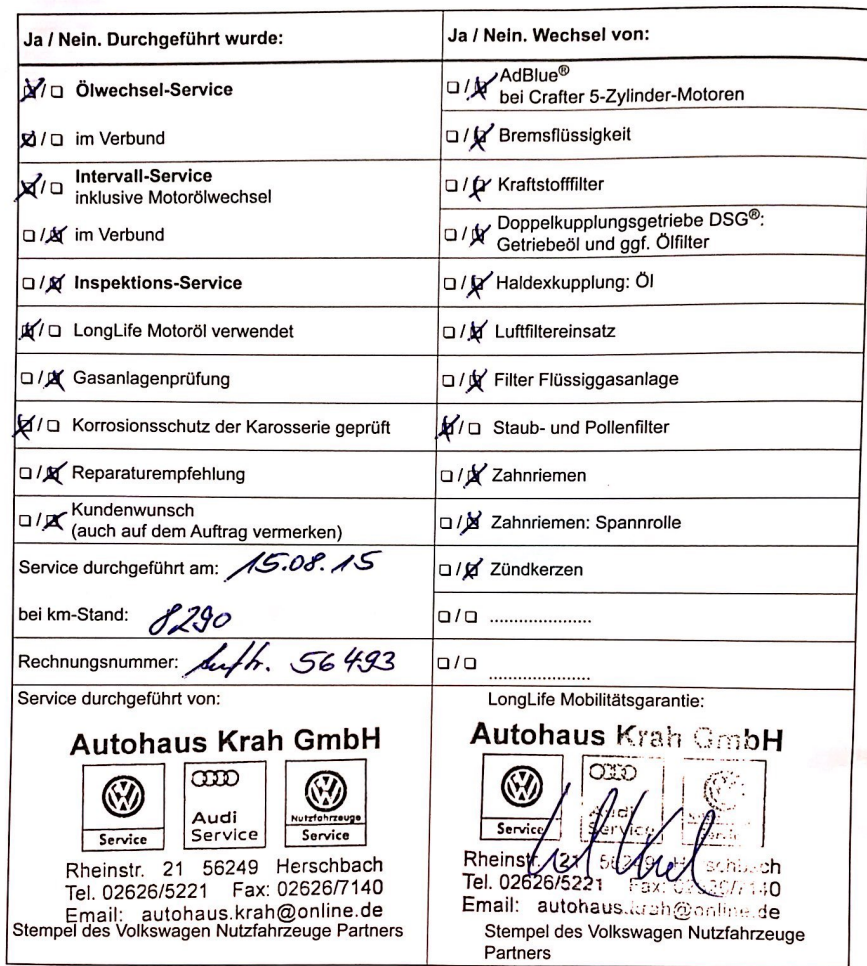 Ja / Nein. Durchgeführt wurde:
☒ / ☐ Ölwechsel-Service
☒ / ☐ im Verbund
☒ / ☐ Intervall-Service
inklusive Motorölwechsel
☐ / ☒ im Verbund
☐ / ☒ Inspektions-Service
☒ / ☐ LongLife Motoröl verwendet
☐ / ☒ Gasanlagenprüfung
☒ / ☐ Korrosionsschutz der Karosserie geprüft
☐ / ☒ Reparaturempfehlung
☐ / ☒ Kundenwunsch
(auch auf dem Auftrag vermerken)
Service durchgeführt am: 15.08.15
bei km-Stand: 8290
Rechnungsnummer: Auftr. 56493
Service durchgeführt von:
Autohaus Krah GmbH
Service
Audi
Service
Nutzfahrzeuge
Service
Rheinstr. 21 56249 Herschbach
Tel. 02626/5221 Fax: 02626/7140
Email: autohaus.krah@online.de
Stempel des Volkswagen Nutzfahrzeuge Partners
Ja / Nein. Wechsel von:
☐ / ☒ AdBlue®
bei Crafter 5-Zylinder-Motoren
☐ / ☒ Bremsflüssigkeit
☐ / ☒ Kraftstofffilter
☐ / ☒ Doppelkupplungsgetriebe DSG®:
Getriebeöl und ggf. Ölfilter
☐ / ☒ Haldexkupplung: Öl
☐ / ☒ Luftfiltereinsatz
☐ / ☒ Filter Flüssiggasanlage
☒ / ☐ Staub- und Pollenfilter
☐ / ☒ Zahnriemen
☐ / ☒ Zahnriemen: Spannrolle
☐ / ☒ Zündkerzen
☐ / ☐ .....................
☐ / ☐ .....................
LongLife Mobilitätsgarantie:
Autohaus Krah GmbH
Service
Audi
Service
Rheinstr. 21 56249 Herschbach
Tel. 02626/5221 Fax: 02626/7140
Email: autohaus.krah@online.de
Stempel des Volkswagen Nutzfahrzeuge
Partners